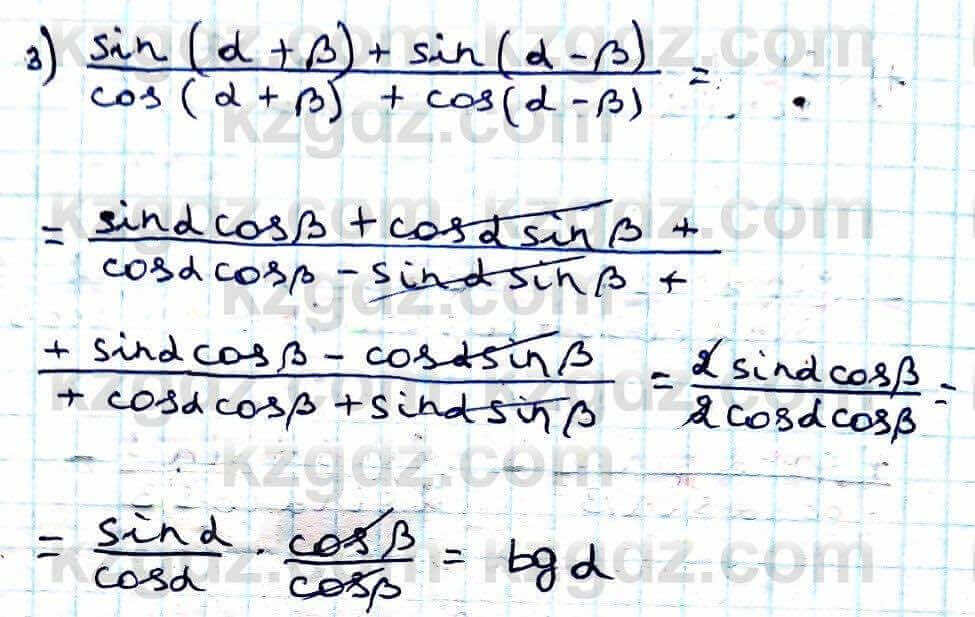 3) sin(α + β) + sin(α - β) / cos(α + β) + cos(α - β) =
= sinα cosβ + cosα sinβ + / cosα cosβ - sinα sinβ +
+ sinα cosβ - cosα sinβ / + cosα cosβ + sinα sinβ = 2 sinα cosβ / 2 cosα cosβ =
= sinα / cosα · cosβ / cosβ = tgα
kzgdz.com